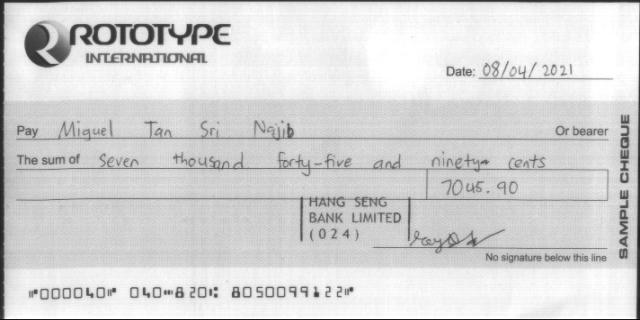 ROTOTYPE
INTERNATIONAL
Date: 08/04/2021
Pay Miguel Tan Sri Najib Or bearer
The sum of Seven thousand forty-five and ninety cents
7045.90
HANG SENG
BANK LIMITED
(024)
No signature below this line
SAMPLE CHEQUE
⑈000040⑈ 040⑉820⑆ 8050099122⑈